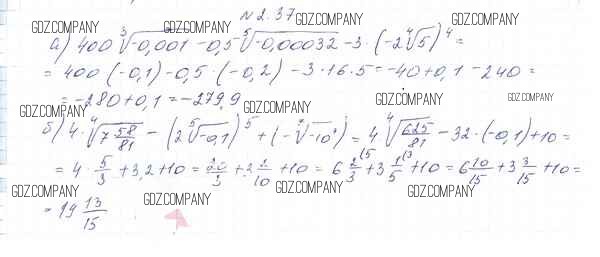 №2.37
GDZ.COMPANY GDZ.COMPANY GDZ.COMPANY GDZ.COMPANY
а) 400 ∛-0,001 - 0,5 ⁵√-0,00032 - 3·(-2 ⁴√5)⁴ =
= 400(-0,1) - 0,5·(-0,2) - 3·16·5 = -40 + 0,1 - 240 =
= -280 + 0,1 = -279,9
GDZ.COMPANY GDZ.COMPANY GDZ.COMPANY GDZ.COMPANY
б) 4· ⁴√7 58/81 - (2 ⁵√-0,1)⁵ + (- ⁷√-10⁷) = 4 ⁴√625/81 - 32·(-0,1) + 10 =
= 4· 5/3 + 3,2 + 10 = 20/3 + 3 2/10 + 10 = 6 2/3 + 3 1/5 + 10 = 6 10/15 + 3 3/15 + 10 =
GDZ.COMPANY GDZ.COMPANY GDZ.COMPANY GDZ.COMPANY
= 19 13/15